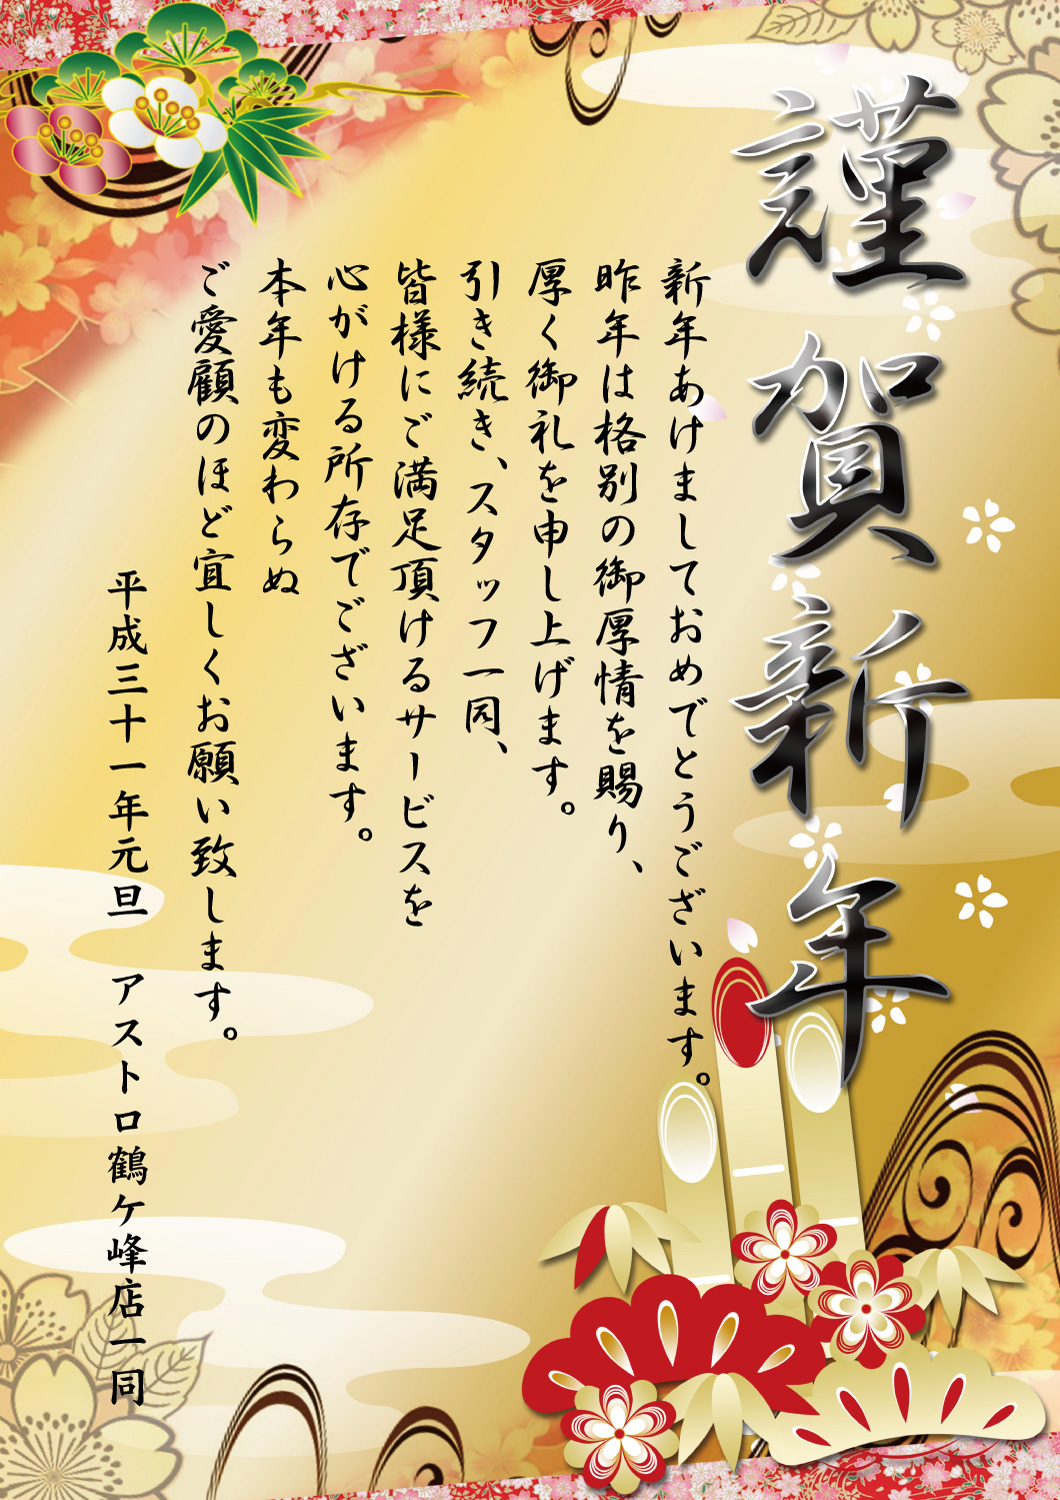 謹賀新年
新年あけましておめでとうございます。
昨年は格別の御厚情を賜り、
厚く御礼を申し上げます。
引き続き、スタッフ一同、
皆様にご満足頂けるサービスを
心がける所存でございます。
本年も変わらぬ
ご愛顧のほど宜しくお願い致します。
平成三十一年元旦　アストロ鶴ケ峰店一同